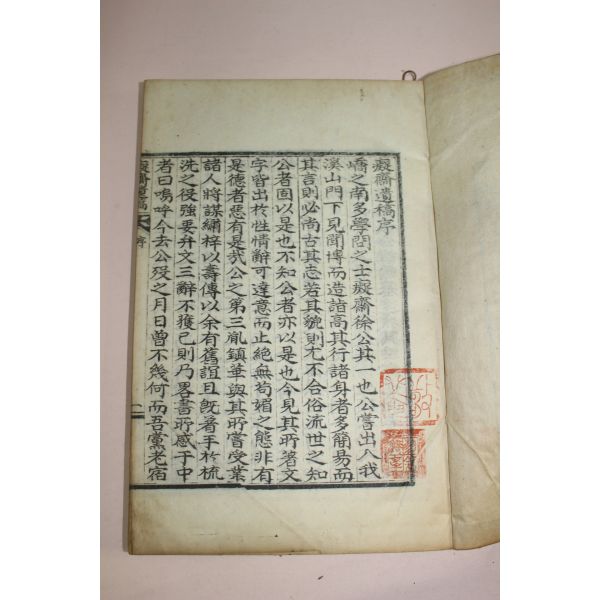 癡齋遺稿序
嶠之南多學問之士癡齋徐公其一也公嘗出入我
溪山門下見聞博而造詣高其行諸身者多簡易而
其言則必尚古其志若其貌則尤不合俗流世之知
公者固以是也不知公者亦以是也今見其所著文
字皆出於性情辭可達意而止絶無苟媚之態非有
是德者惡有是哉公之第三胤鎭華與其所嘗受業
諸人將謀繡梓以壽傳以余有舊誼且旣著手於梳
洗之役強要弁文三辭不獲已則乃畧書所感于中
者曰嗚呼今去公歿之月日曾不幾何而吾黨老宿
癡齋遺稿 序 一